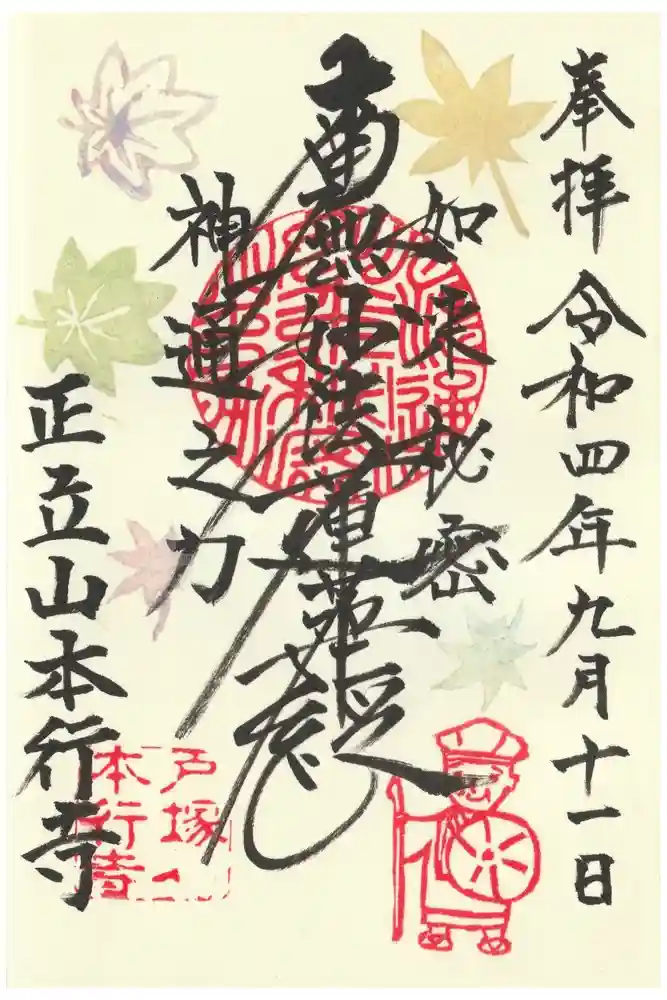 奉拝 令和四年九月十一日
如来秘密
南無妙法蓮華経
神通之力
正立山本行寺
戸塚
本行寺